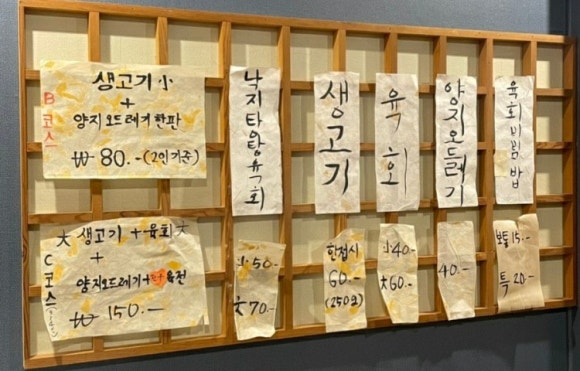 B코스
생고기 小
+
양지오드레기한판
₩ 80.-(2인기준)
C코스
大 생고기+육회 大
+
양지오드레기+ 육전
₩ 150.-
낙지탕탕육회
小 50.-
大 70.-
생고기
한접시
60.-
(250g)
육회
小 40.-
大 60.-
양지오드레기
40.-
육회비빔밥
보통 15.-
특 20.-